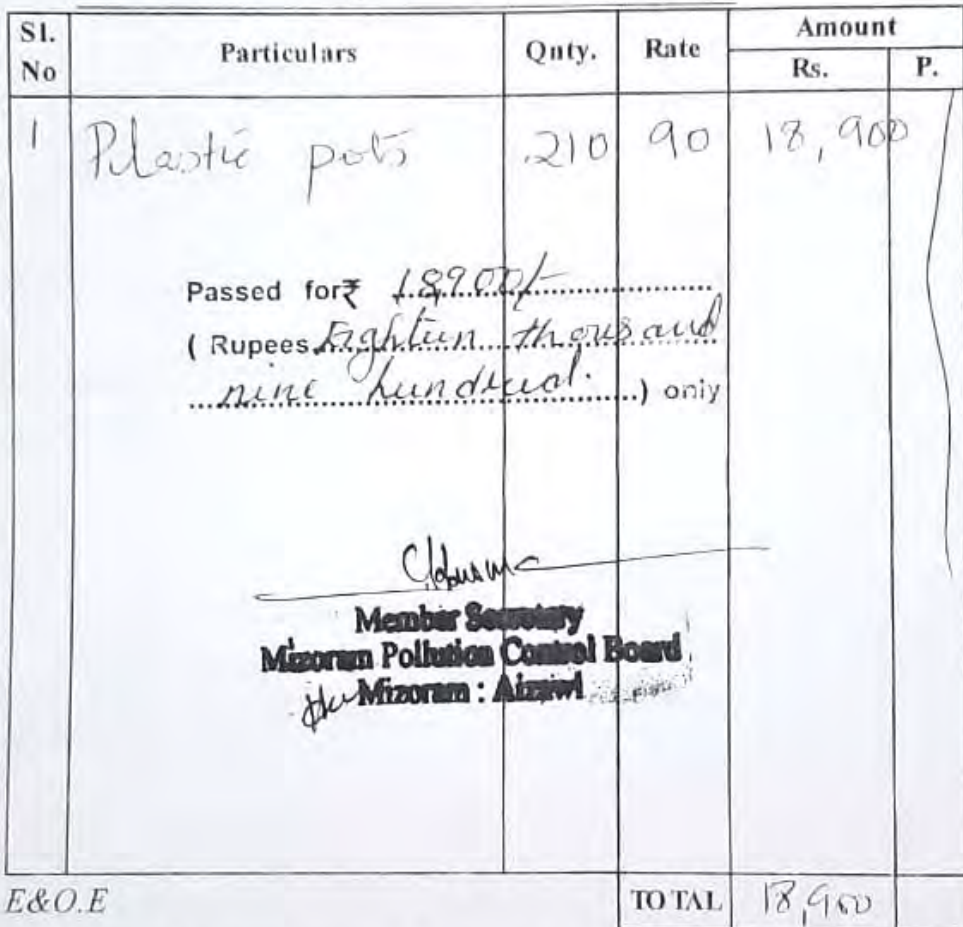 Sl. No Particulars Qnty. Rate Amount
Rs. P.
1 Plastic pots 210 90 18,900
Passed for ₹ 18900/-
( Rupees Eighteen thousand
nine hundred. ) only
Member Secretary
Mizoram Pollution Control Board
Mizoram : Aizawl
E&O.E TOTAL 18,900